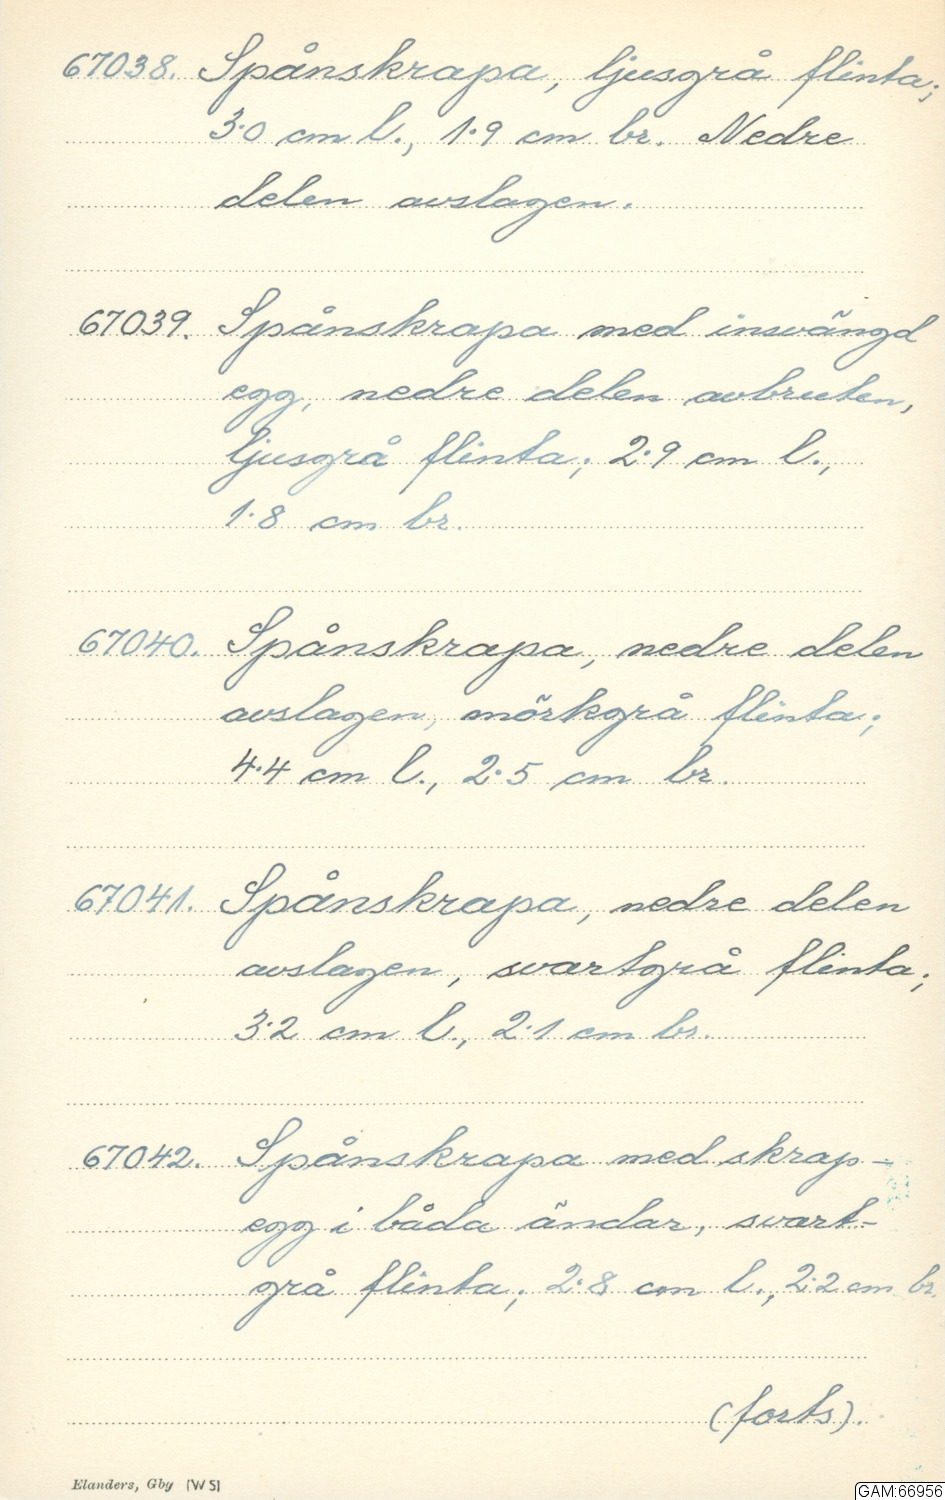 67038. Spånskrapa, ljusgrå flinta;
3·0 cm l., 1·9 cm br. Nedre
delen avslagen.
67039. Spånskrapa med insvängd
egg, nedre delen avbruten,
ljusgrå flinta; 2·9 cm l.,
1·8 cm br.
67040. Spånskrapa, nedre delen
avslagen, mörkgrå flinta;
4·4 cm l., 2·5 cm br.
67041. Spånskrapa, nedre delen
avslagen, svartgrå flinta;
3·2 cm l., 2·1 cm br.
67042. Spånskrapa med skrap-
egg i båda ändar, svart-
grå flinta; 2·8 cm l., 2·2 cm br.
(forts).
Elanders, Gby (W S)
GAM:66956